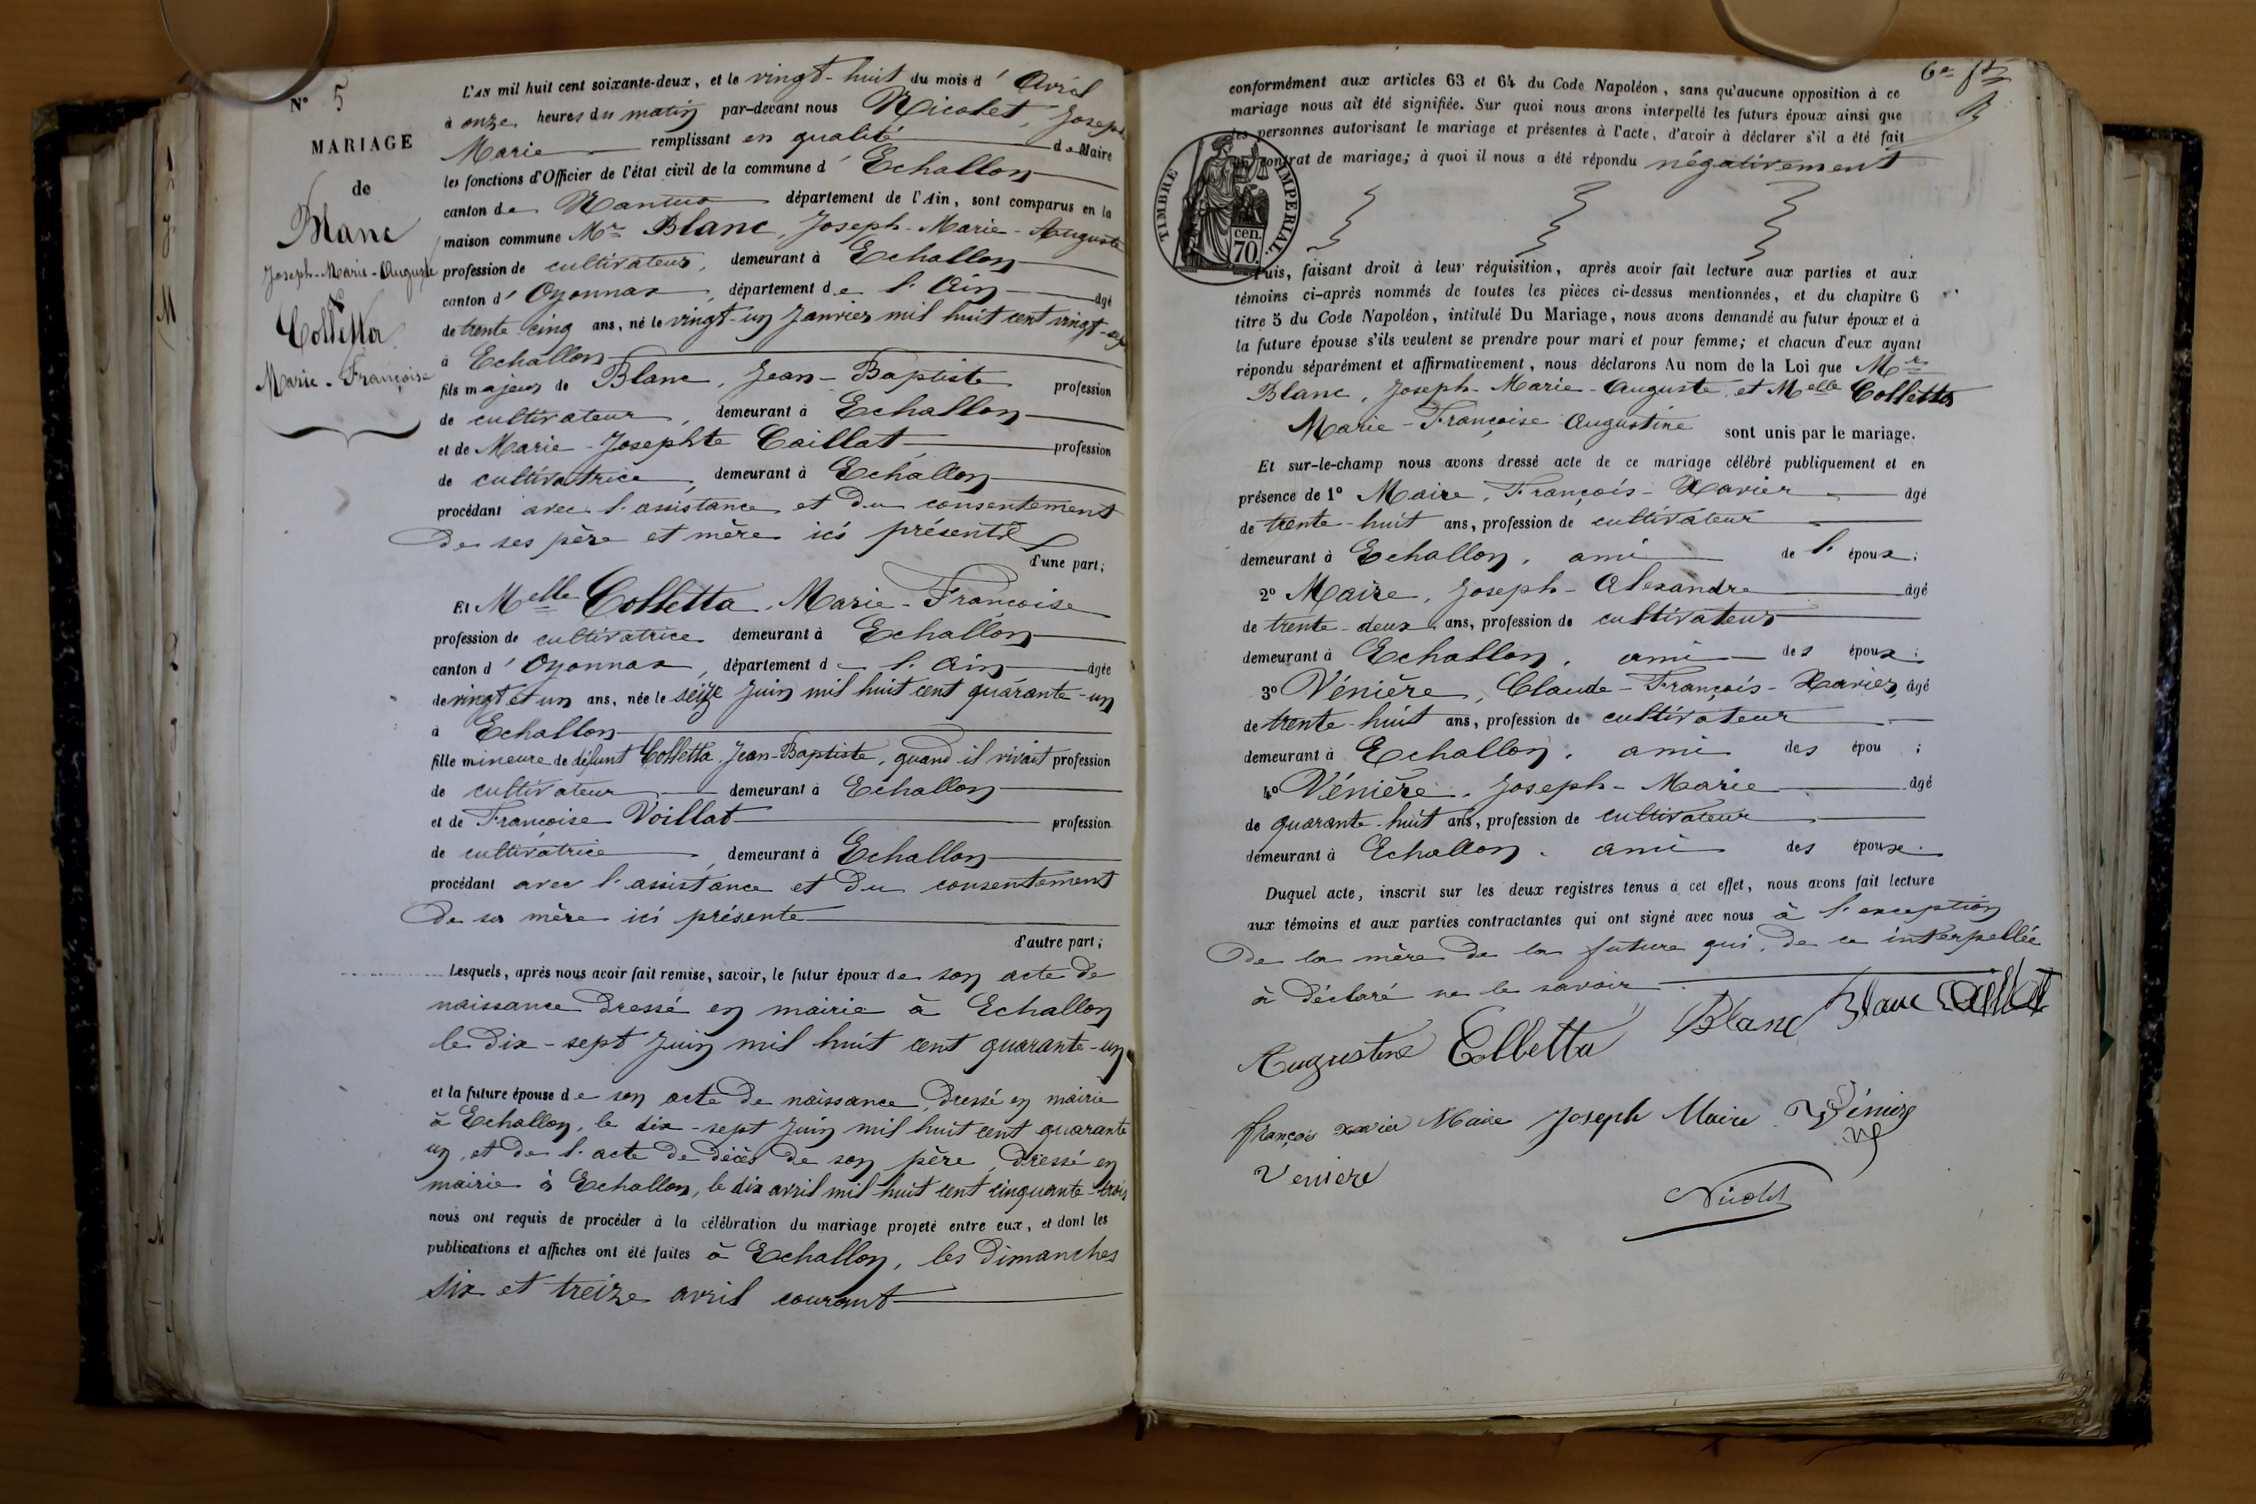 N° 5
MARIAGE
de
Blanc
Joseph-Marie-Auguste
&
Colletta
Marie-Françoise
L'AN mil huit cent soixante-deux, et le vingt-huit du mois d'Avril
à onze heures du matin par-devant nous Nicolet, Joseph
Marie remplissant en qualité de Maire
les fonctions d'Officier de l'état civil de la commune d'Echallon
canton de Nantua département de l'Ain, sont comparus en la
maison commune Mr Blanc, Joseph-Marie-Auguste
profession de cultivateur, demeurant à Echallon
canton d'Oyonnax, département de l'Ain âgé
de trente cinq ans, né le vingt-un Janvier mil huit cent vingt-
à Echallon
fils majeur de Blanc, Jean-Baptiste profession
de cultivateur, demeurant à Echallon
et de Marie-Josephte Caillat profession
de cultivatrice, demeurant à Echallon
procédant avec l'assistance et du consentement
de ses père et mère ici présents
d'une part;
Et Melle Colletta, Marie-Françoise
profession de cultivatrice demeurant à Echallon
canton d'Oyonnax, département de l'Ain âgée
de vingt et un ans, née le seize Juin mil huit cent quarante-un
à Echallon
fille mineure de défunt Colletta Jean-Baptiste, quand il vivait profession
de cultivateur demeurant à Echallon
et de Françoise Voillat profession
de cultivatrice, demeurant à Echallon
procédant avec l'assistance et du consentement
de sa mère ici présente
d'autre part;
Lesquels, après nous avoir fait remise, savoir, le futur époux de son acte de
naissance dressé en mairie à Echallon
le dix-sept Juin mil huit cent quarante-un
et la future épouse de son acte de naissance, dressé en mairie
à Echallon, le dix-sept Juin mil huit cent quarante
un, et de l'acte de décès de son père, dressé en
mairie à Echallon, le dix avril mil huit cent cinquante-trois
nous ont requis de procéder à la célébration du mariage projeté entre eux, et dont les
publications et affiches ont été faites à Echallon, les dimanches
six et treize avril courant
6e
conformément aux articles 63 et 64 du Code Napoléon, sans qu'aucune opposition à ce
mariage nous ait été signifiée. Sur quoi nous avons interpellé les futurs époux ainsi que
les personnes autorisant le mariage et présentes à l'acte, d'avoir à déclarer s'il a été fait
un contrat de mariage; à quoi il nous a été répondu négativement
TIMBRE IMPERIAL.
70 cen.
Puis, faisant droit à leur réquisition, après avoir fait lecture aux parties et aux
témoins ci-après nommés de toutes les pièces ci-dessus mentionnées, et du chapitre 6
titre 5 du Code Napoléon, intitulé Du Mariage, nous avons demandé au futur époux et à
la future épouse s'ils veulent se prendre pour mari et pour femme; et chacun d'eux ayant
répondu séparément et affirmativement, nous déclarons Au nom de la Loi que Mr
Blanc, Joseph-Marie-Auguste, et Melle Colletta
Marie-Françoise Augustine sont unis par le mariage.
Et sur-le-champ nous avons dressé acte de ce mariage célébré publiquement et en
présence de 1° Maire, François-Xavier âgé
de trente-huit ans, profession de cultivateur
demeurant à Echallon, ami de l'époux;
2° Maire, Joseph-Alexandre âgé
de trente-deux ans, profession de cultivateur
demeurant à Echallon, ami des époux;
3° Vénière, Claude-François-Xavier, âgé
de trente-huit ans, profession de cultivateur
demeurant à Echallon, ami des épou ;
4° Vénière, Joseph-Marie âgé
de quarante-huit ans, profession de cultivateur
demeurant à Echallon, ami des époux.
Duquel acte, inscrit sur les deux registres tenus à cet effet, nous avons fait lecture
aux témoins et aux parties contractantes qui ont signé avec nous à l'exception
de la mère de la future qui, de ce interpellée
a déclaré ne le savoir.
Augustine Colletta Blanc Blanc Caillat
françois xavier Maire Joseph Maire Vénière
Veniere
Nicolet